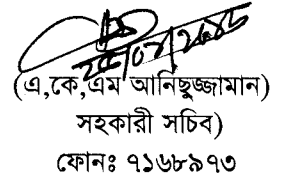 (এ,কে,এম আনিছুজ্জামান)
সহকারী সচিব)
ফোনঃ ৭১৬৮৯৭৩